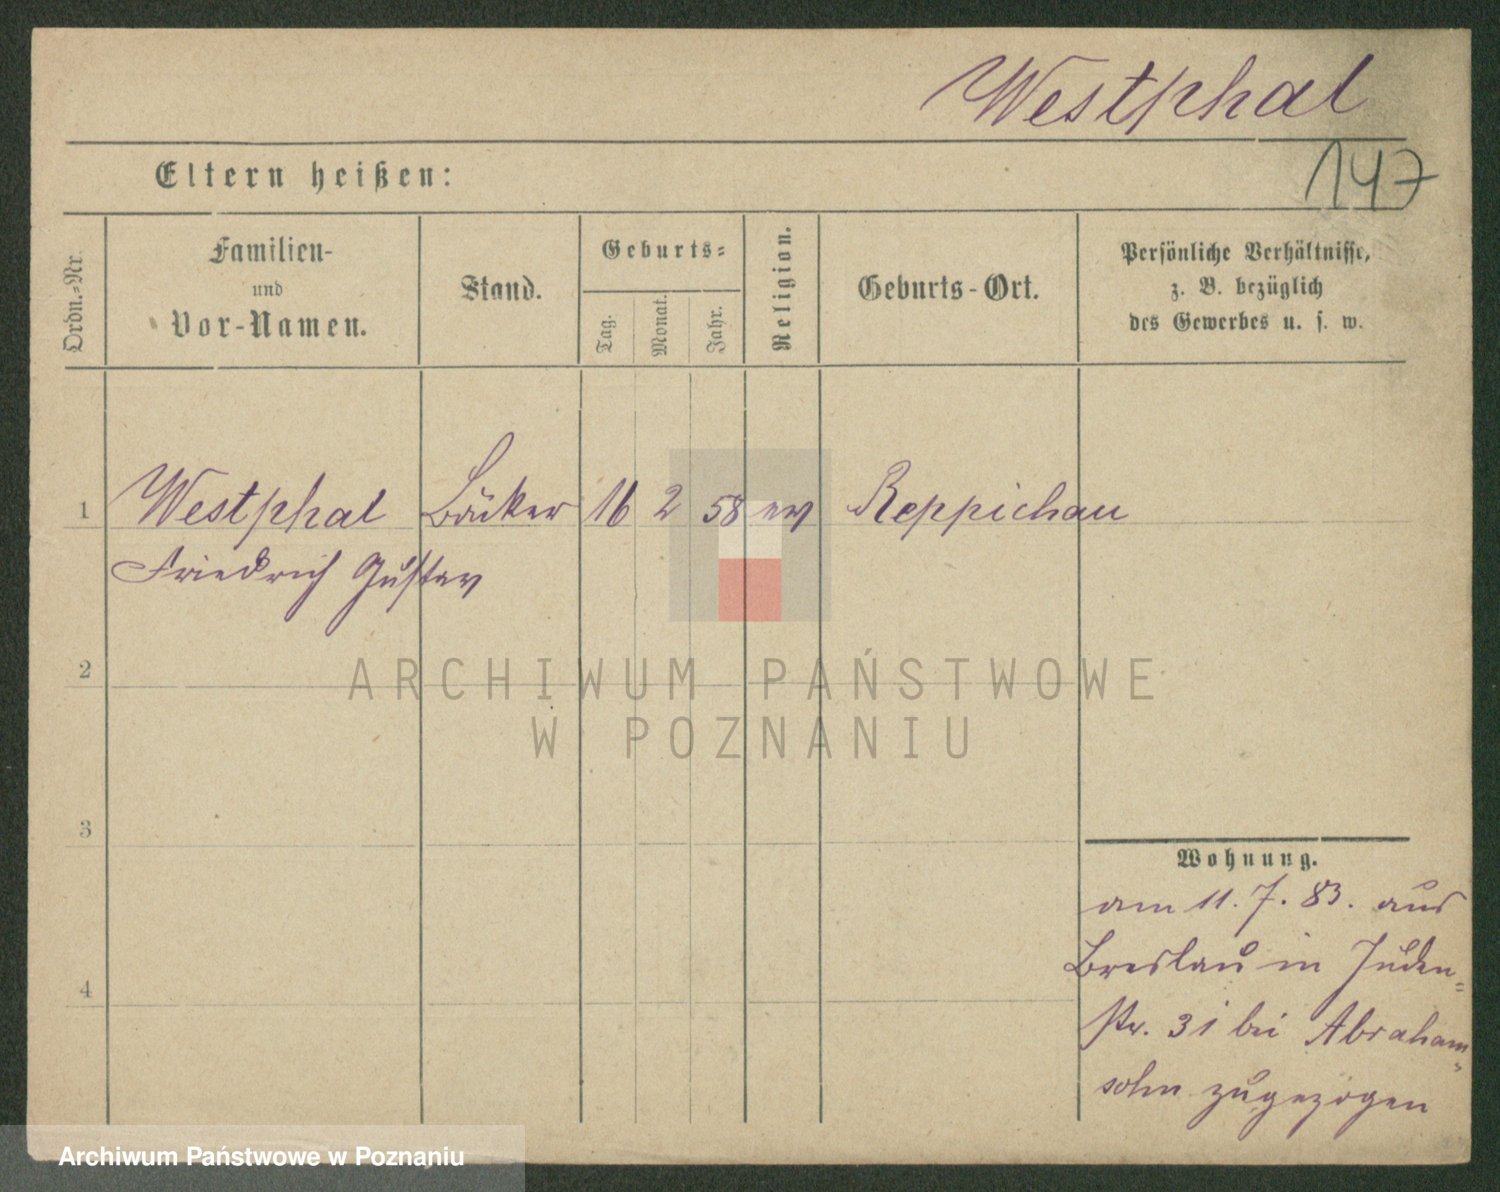 Westphal
147
Eltern heißen:
Ordn.-Nr.
Familien-
und
Vor-Namen.
Stand.
Geburts-
Tag.
Monat.
Jahr.
Religion.
Geburts-Ort.
Persönliche Verhältnisse,
z. B. bezüglich
des Gewerbes u. s. w.
1 Westphal Bäcker 16 2 58 ev Reppichau
Friedrich Gustav
2
ARCHIWUM PAŃSTWOWE
W POZNANIU
3
Wohnung.
am 11. 7. 83. aus
Breslau in Juden-
4
str. 31 bei Abraham-
sohn zugezogen
Archiwum Państwowe w Poznaniu